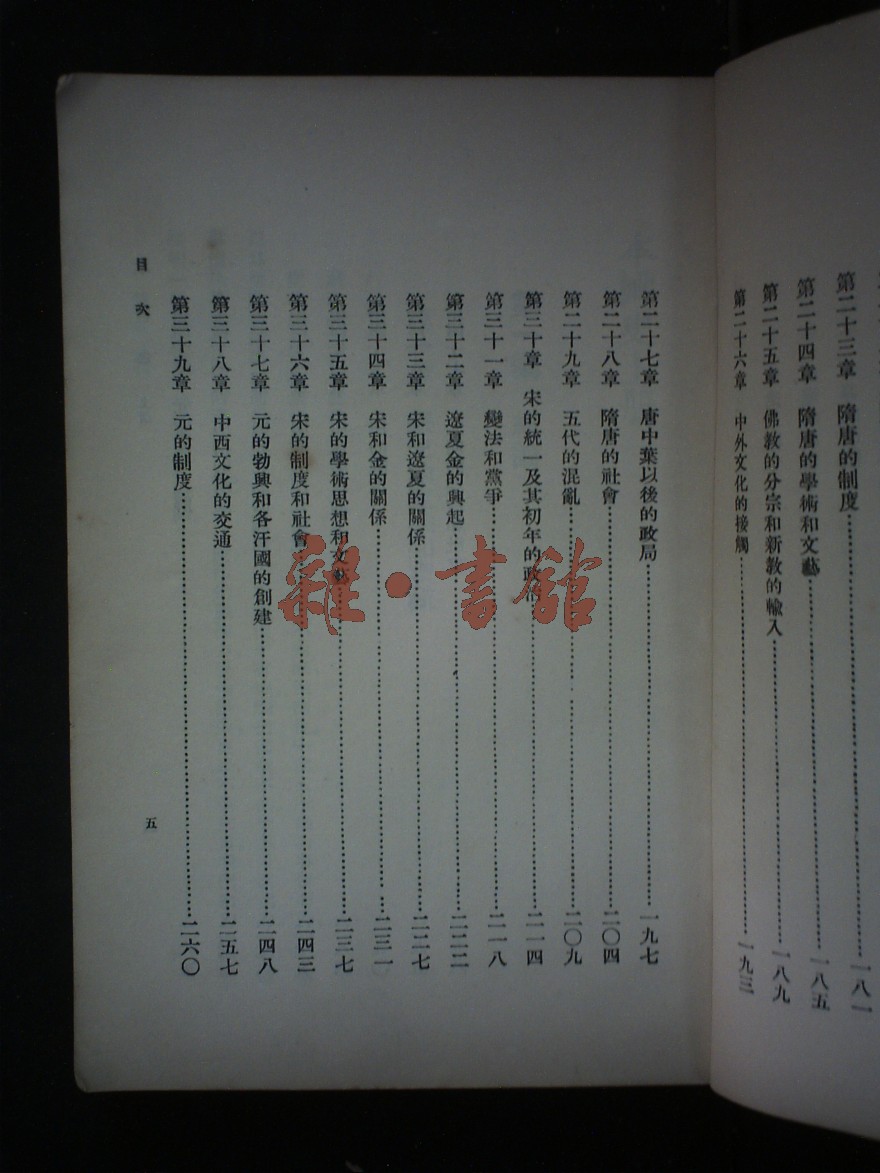 第二十三章　隋唐的制度……一八一
第二十四章　隋唐的學術和文藝……一八五
第二十五章　佛教的分宗和新教的輸入……一八九
第二十六章　中外文化的接觸……一九三
第二十七章　唐中葉以後的政局……一九七
第二十八章　隋唐的社會……二〇四
第二十九章　五代的混亂……二〇九
第三十章　宋的統一及其初年的政……二一四
第三十一章　變法和黨爭……二一八
第三十二章　遼夏金的興起……二二二
第三十三章　宋和遼夏的關係……二二七
第三十四章　宋和金的關係……二三一
第三十五章　宋的學術思想和文藝……二三七
第三十六章　宋的制度和社會……二四三
第三十七章　元的勃興和各汗國的創建……二四八
第三十八章　中西文化的交通……二五七
第三十九章　元的制度……二六〇
目次
五
雜·書舘